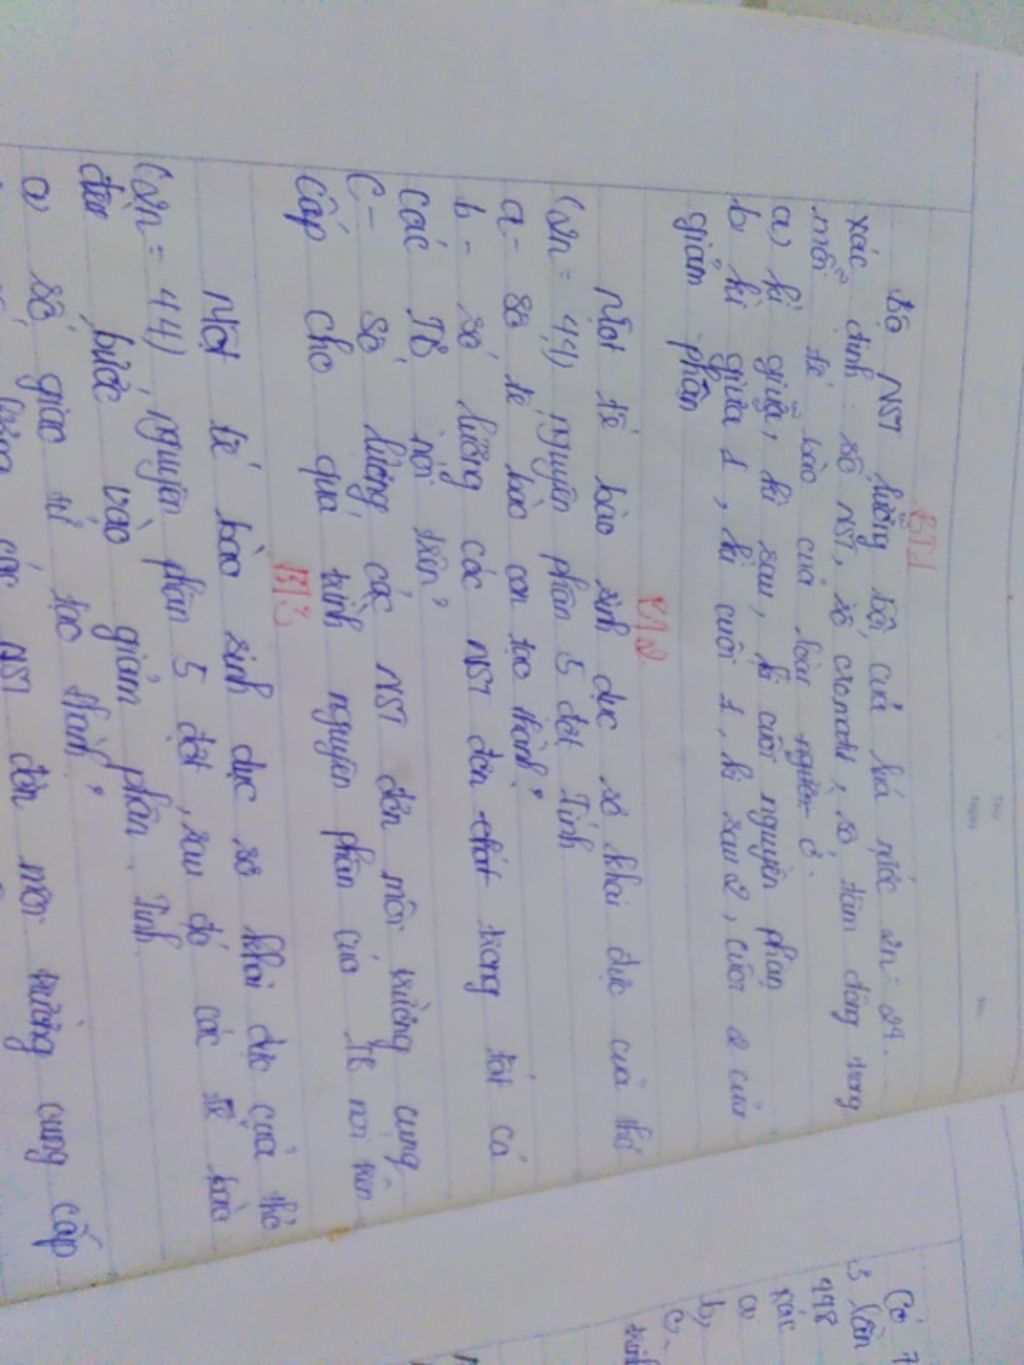 BT1
Bộ NST lưỡng bội của cá nước 2n = 24.
xác định: số NST, số cromatit, số tâm động trong
mỗi tế bào của loài người ở.
a) kì giữa, kì sau, kì cuối nguyên phân
b) kì giữa 1, kì cuối 1, kì sau 2, cuối 2 của
giảm phân
BT2
Một tế bào sinh dục sơ khai đực của thỏ
(2n = 44) nguyên phân 5 đợt. Tính
a- số tế bào con tạo thành?
b- số lượng các NST đơn trong tất cả
các TB nói trên?
c- số lượng các NST đơn môi trường cung
cấp cho quá trình nguyên phân của TB nói trên
BT3
Một tế bào sinh dục sơ khai đực của thỏ
(2n = 44) nguyên phân 5 đợt, sau đó các tế bào
đều bước vào giảm phân. Tính
a) số giao tử tạo thành?
các NST đơn môi trường cung cấp
Có 7
3 lần
448
xác
a
b,
c,
trình